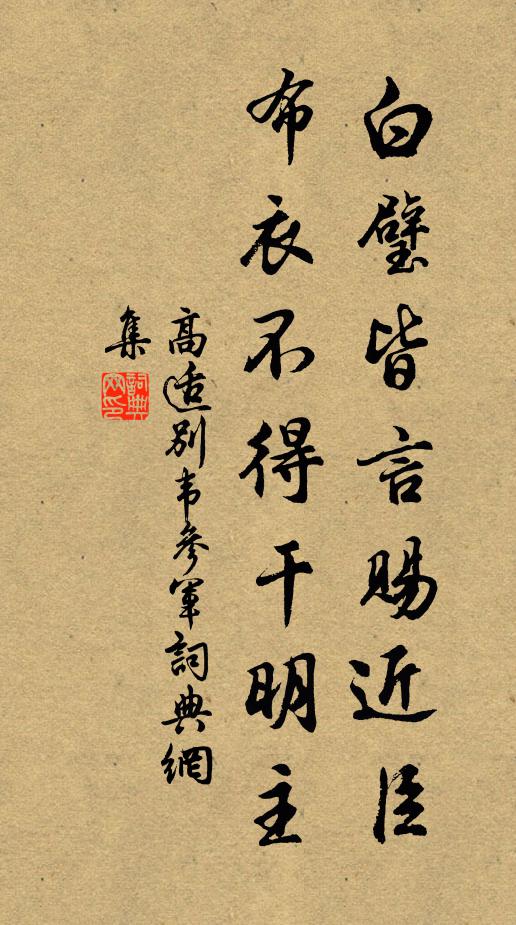 白璧皆言賜近臣
布衣不得干明主
高適別韦參軍詞典網
集
詞典
网印